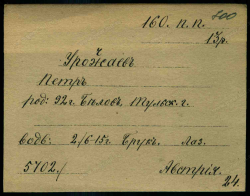 160. п.п. 300
13р.
Урожаевъ
Петръ
род: 92г. Бѣлов, Тульск. г.
водв: 2/6-15г. Брук. Лаз.
5702./ Австрія.
24